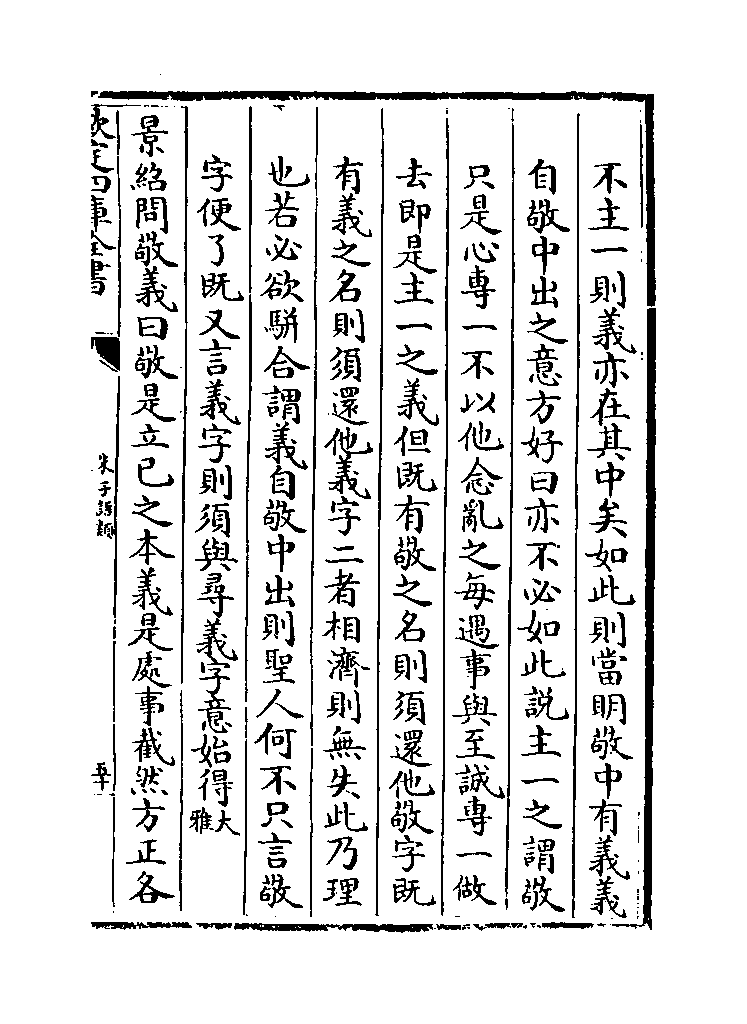 不主一則義亦在其中矣如此則當明敬中有義義
自敬中出之意方好曰亦不必如此説主一之謂敬
只是心専一不以他念亂之每遇事與至誠専一做
去即是主一之義但既有敬之名則須還他敬字既
有義之名則須還他義字二者相濟則無失此乃理
也若必欲駢合謂義自敬中出則聖人何不只言敬
字便了既又言義字則須與尋義字意始得大雅
景紹問敬義曰敬是立已之本義是處事截然方正各
欽定四庫全書
朱子語類
五十